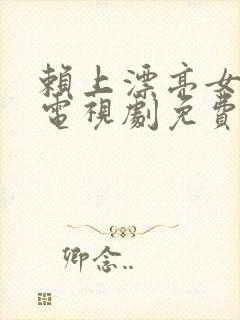 賴上漂亮女
電視劇免費
卿念..